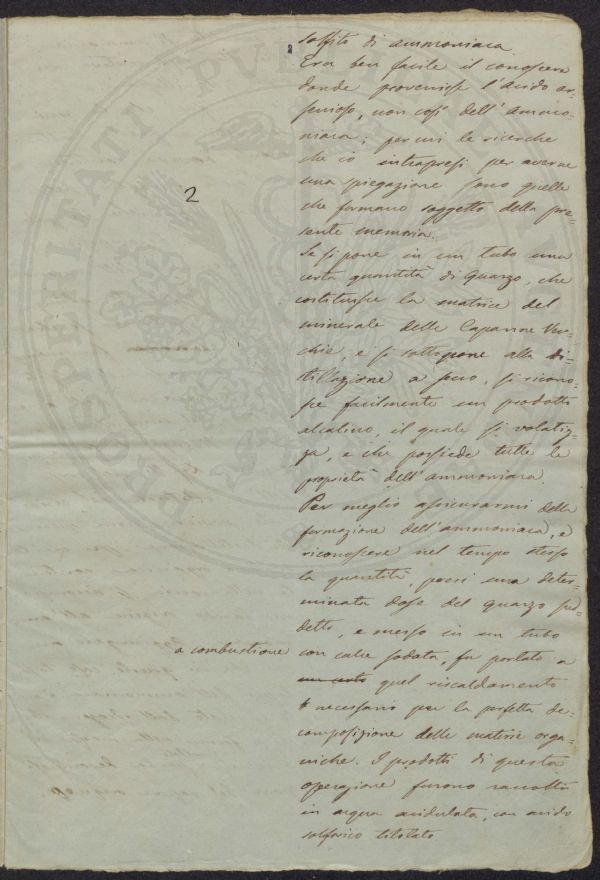 2
solfito di ammoniaca.
Era ben facile il conoscere
donde provenisse l'acido ar=
senioso, non così dell'ammo=
niaca; per cui le ricerche
che io intrapresi per averne
una spiegazione sono quelle
che formano soggetto della pre=
sente memoria.
Se si pone in un tubo una
certa quantità di Quarzo, che
costituisce la matrice del
minerale delle Capanne Vec=
chie, e si sottopone alla di=
stillazione a secco, si ricono=
sce facilmente un prodotto
alcalino, il quale si volatiz=
za, e che possiede tutte le
proprietà dell'ammoniaca.
Per meglio assicurarmi della
formazione dell'ammoniaca, e
riconoscere nel tempo stesso
la quantità, presi una deter=
minata dose del quarzo sud=
detto, e messo in un tubo
a combustione
con calce sodata, fu portato a
un certo quel riscaldamento
necessario per la perfetta de=
composizione delle materie orga=
niche. I prodotti di questa
operazione furono raccolti
in acqua acidulata, con acido
solforico titolato